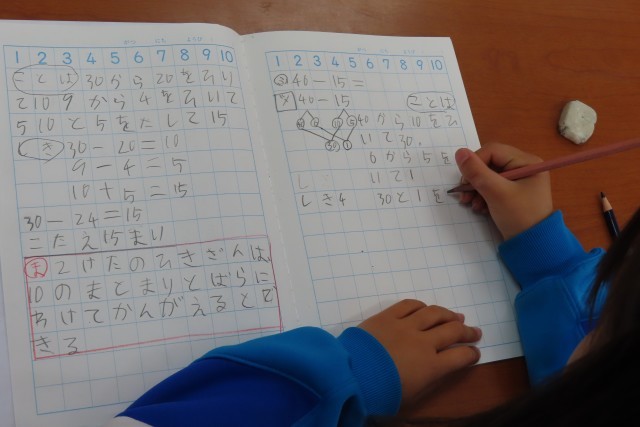 1 2 3 4 5 6 7 8 9 10
ことば 30から20をひい
て10 9から4をひいて
5 10と5をたして15
しき 30-20=10
9-4=5
10+5=15
30-24=15
こたえ15まい
ま 2けたのひきざんは、
10のまとまりとばらに
わけてかんがえるとで
きる
1 2 3 4 5 6 7 8 9 10
40-15=
ず 40-15 ことば
40から10をひ
いて30.
6から5を
いて1
しき4 30と1を